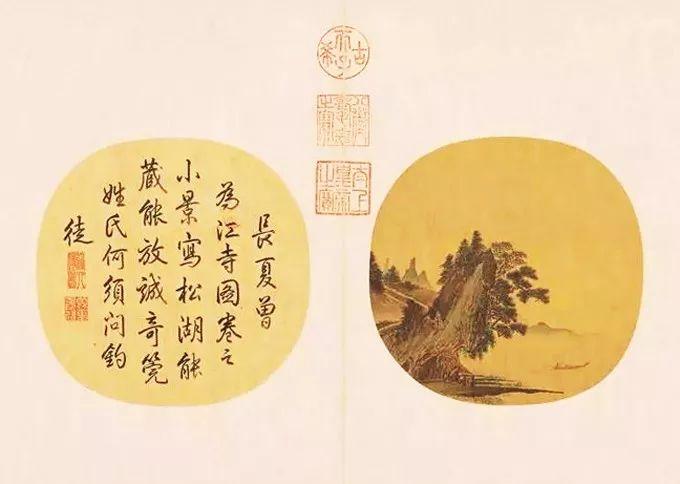 古稀天子
八徵耄念之寶
太上皇帝之寶
長夏曾
為江寺圖卷之
小景寫松湖能
藏能放誠奇覺
姓氏何須問釣
徒